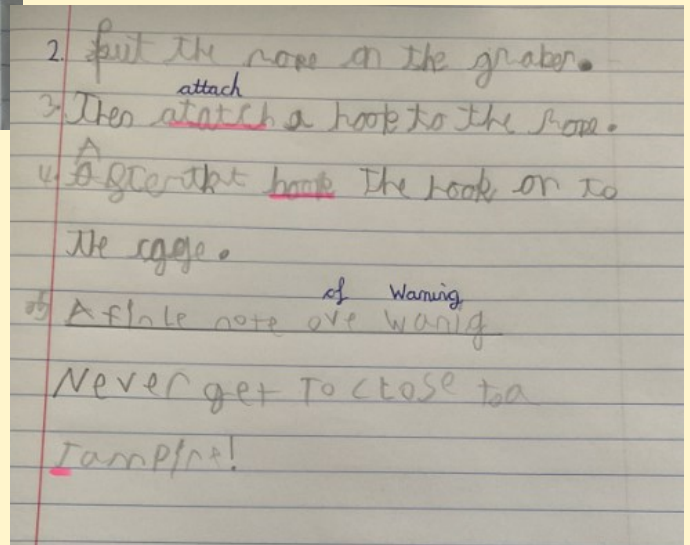 2. Put the rope on the graber.
attach
3. Then atatch a hook to the rope.
A
4. After that hook the hook on to
the cage.
of Warning
A finle note ove wanig
Never get to close to a